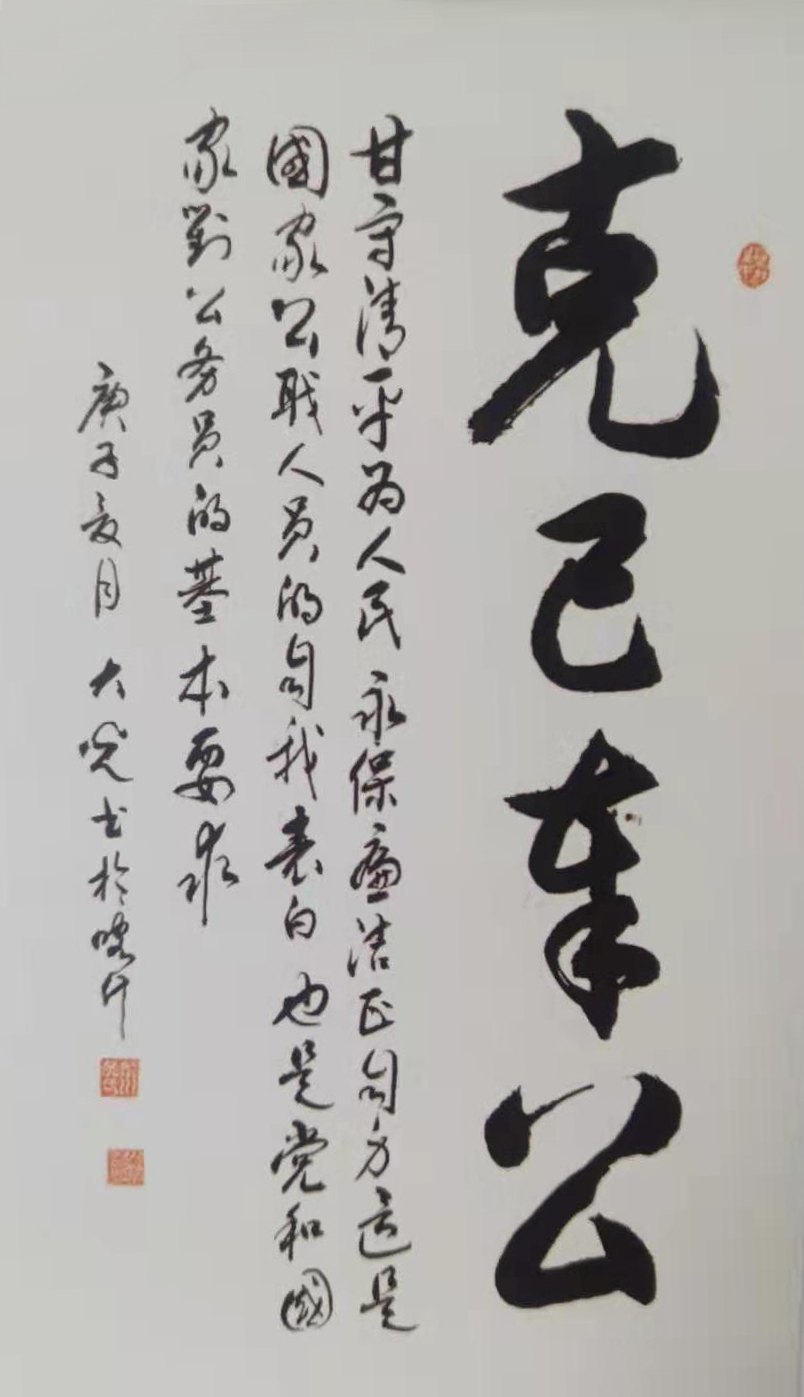 克己奉公
甘守清平为人民永保廉洁正自方这是
國家公职人员的自我表白也是党和國
家對公务员的基本要求
庚子夏月 大光书於喀什